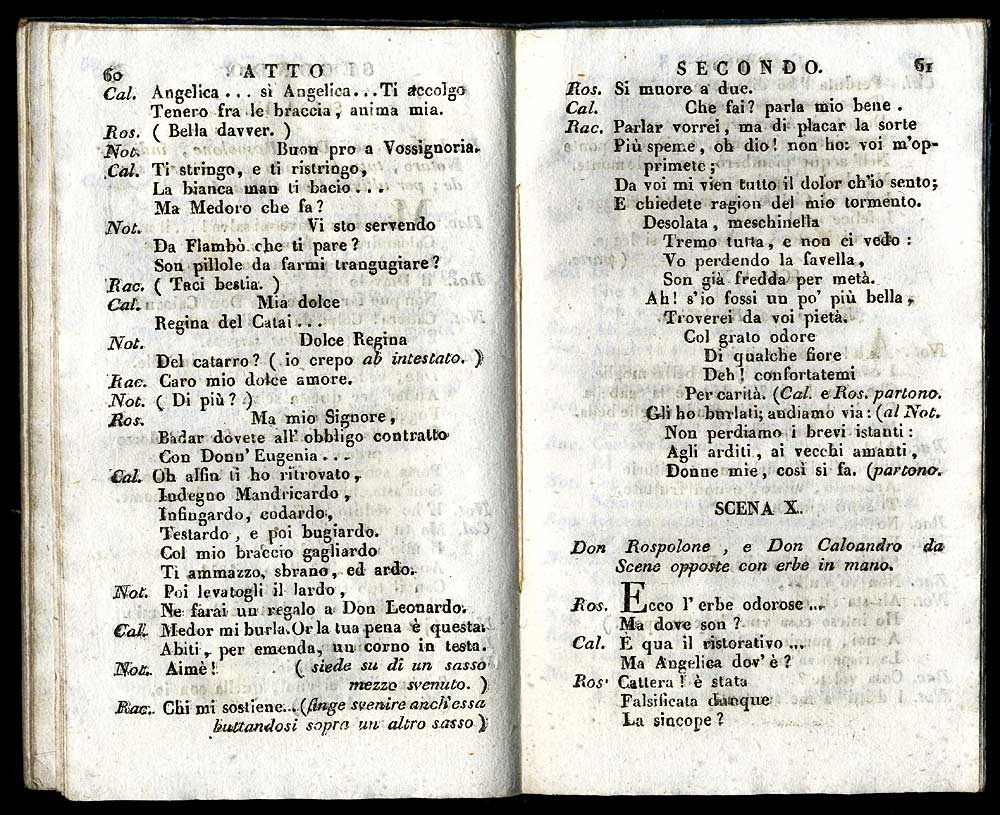 60 ATTO
Cal. Angelica ... sì Angelica...Ti accolgo
Tenero fra le braccia, anima mia.
Ros. ( Bella davver. )
Not. Buon pro a Vossignoria.
Cal. Ti stringo, e ti ristringo,
La bianca man ti bacio...
Ma Medoro che fa?
Not. Vi sto servendo
Da Flambò che ti pare?
Son pillole da farmi trangugiare?
Rac. ( Taci bestia. )
Cal. Mia dolce
Regina del Catai...
Not. Dolce Regina
Del catarro? ( io crepo ab intestato. )
Rac. Caro mio dolce amore.
Not. ( Di più? )
Ros. Ma mio Signore,
Badar dovete all' obbligo contratto
Con Donn' Eugenia...
Cal. Oh alfin ti ho ritrovato,
Indegno Mandricardo,
Infingardo, codardo,
Testardo, e poi bugiardo.
Col mio braccio gagliardo
Ti ammazzo, sbrano, ed ardo.
Not. Poi levatogli il lardo,
Ne farai un regalo a Don Leonardo.
Cal. Medor mi burla. Or la tua pena è questa:
Abiti, per emenda, un corno in testa.
Not. Aimè! ( siede su di un sasso
mezzo svenuto. )
Rac. Chi mi sostiene...(finge svenire anch'essa
buttandosi sopra un altro sasso )
SECONDO. 61
Ros. Si muore a due.
Cal. Che fai? parla mio bene.
Rac. Parlar vorrei, ma di placar la sorte
Più speme, oh dio! non ho: voi m'op-
primete;
Da voi mi vien tutto il dolor ch'io sento;
E chiedete ragion del mio tormento.
Desolata, meschinella
Tremo tutta, e non ci vedo:
Vo perdendo la favella,
Son già fredda per metà.
Ah! s'io fossi un po' più bella,
Troverei da voi pietà.
Col grato odore
Di qualche fiore
Deh! confortatemi
Per carità. (Cal. e Ros. partono.
Gli ho burlati; andiamo via: (al Not.
Non perdiamo i brevi istanti:
Agli arditi, ai vecchi amanti,
Donne mie, così si fa. (partono.
SCENA X.
Don Rospolone, e Don Caloandro da
Scene opposte con erbe in mano.
Ros. Ecco l' erbe odorose...
Ma dove son?
Cal. E qua il ristorativo...
Ma Angelica dov' è?
Ros' Cattera! è stata
Falsificata dunque
La sincope?